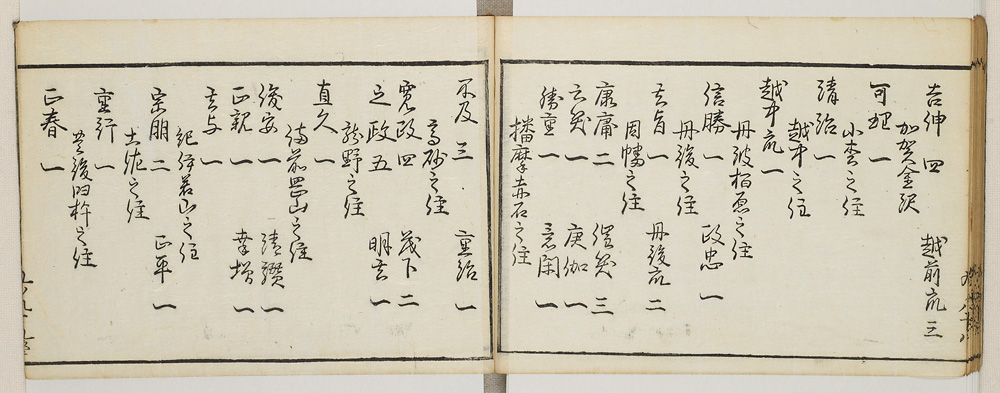 吉伸 四 越前衆 三
加賀金沢
可理 一
小松之住
清治 一
越中之住
越中衆 一
丹波柏原之住
信勝 一 政忠 一
丹後之住
吉旨 一 丹後衆 二
因幡之住
康庸 二 保矣 三
玄矣 一 庚伽 一
勝重 一 意閑 一
播摩赤石之住
不及 三 重治 一
高砂之住
寛政 四 茂下 二
之政 五 明吉 一
龍野之住
直久 一
備前岡山之住
俊安 一 清讃 一
正親 一 幸増 一
吉与 一
紀伊若山之住
宗朋 二 正平 一
土佐之住
重行 一
豊後臼杵之住
正春 一